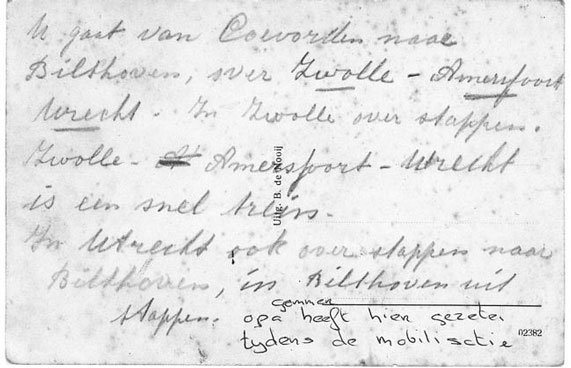 U gaat van Coevorden naar
Bilthoven, over Zwolle - Amersfoort
Utrecht. In Zwolle over stappen.
Zwolle - Amersfoort - Utrecht
is een snel trein.
In Utrecht ook over stappen naar
Bilthoven, in Bilthoven uit
stappen.
Uitg. B. de Nooij
gemmen
opa heeft hier gezeten
tydens de mobilisatie
02382